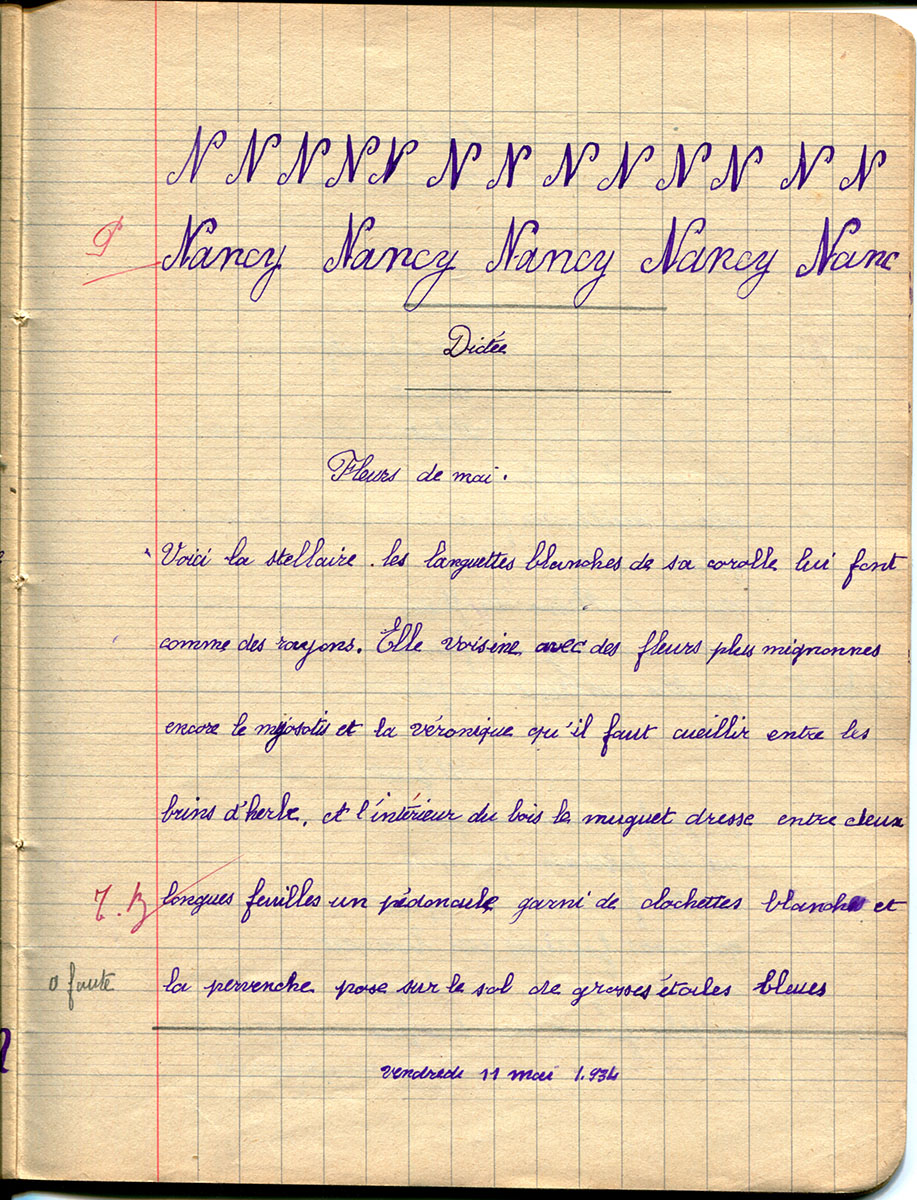 N N N N N N N N N N N N N
Nancy Nancy Nancy Nancy Nanc
Dictée
Fleurs de mai.
Voici la stellaire. les languettes blanches de sa corolle lui font
comme des rayons. Elle voisine avec des fleurs plus mignonnes
encore le myosotis et la véronique qu'il faut cueillir entre les
brins d'herbe, et l'intérieur du bois le muguet dresse entre deux
T. B longues feuilles un pédoncule garni de clochettes blanches et
0 faute la pervenche pose sur le sol de grosses étoiles bleues
vendredi 11 mai 1.934